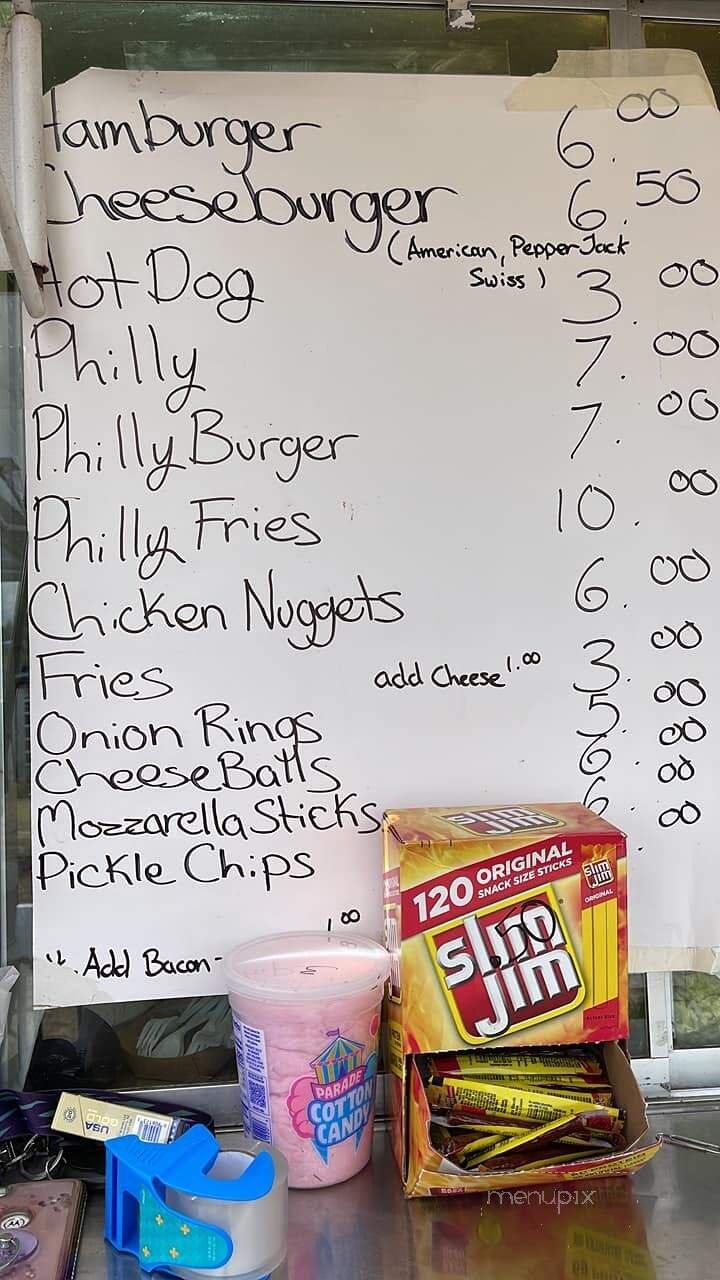 Hamburger 6.00
Cheeseburger 6.50
(American, PepperJack
Swiss)
Hot Dog 3.00
Philly 7.00
Philly Burger 7.00
Philly Fries 10.00
Chicken Nuggets 6.00
Fries add Cheese 1.00 3.00
Onion Rings 5.00
Cheese Balls 6.00
Mozzarella Sticks 6.00
Pickle Chips .00
Add Bacon - 1.00
Slim Jim
120 ORIGINAL
SNACK SIZE STICKS
Slim Jim
ORIGINAL
Slim Jim
.50
PARADE
COTTON
CANDY
USA
GOLD
menupix